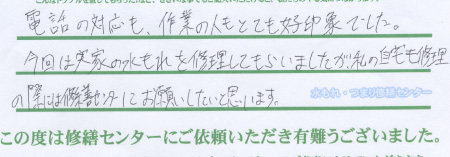 電話の対応も、作業の人もとても好印象でした。
今回は実家の水もれを修理してもらいましたが、私の自宅も修理
の際には修繕センターにお願いしたいと思います。
水もれ・つまり修繕センター
この度は修繕センターにご依頼いただき有難うございました。